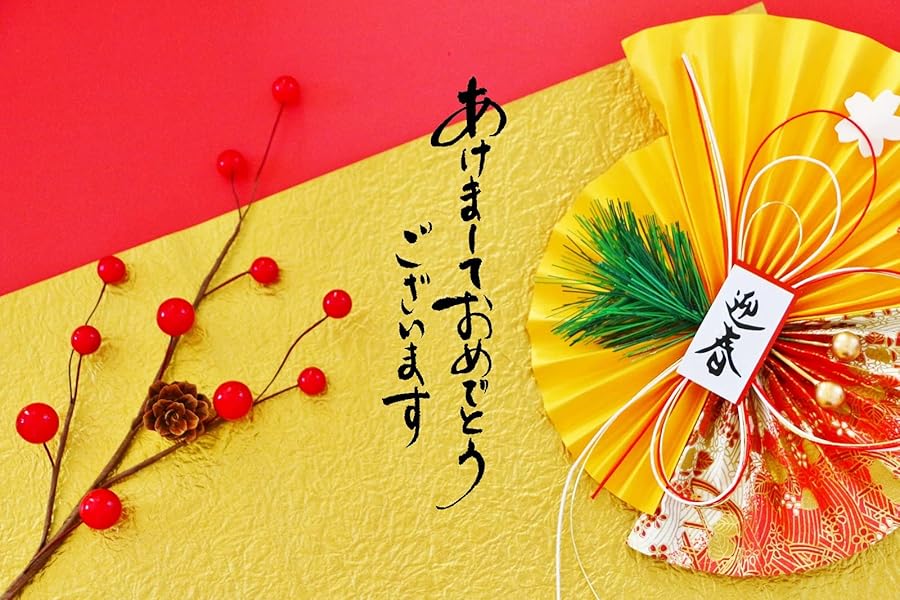 あけましておめでとう
ございます
迎春